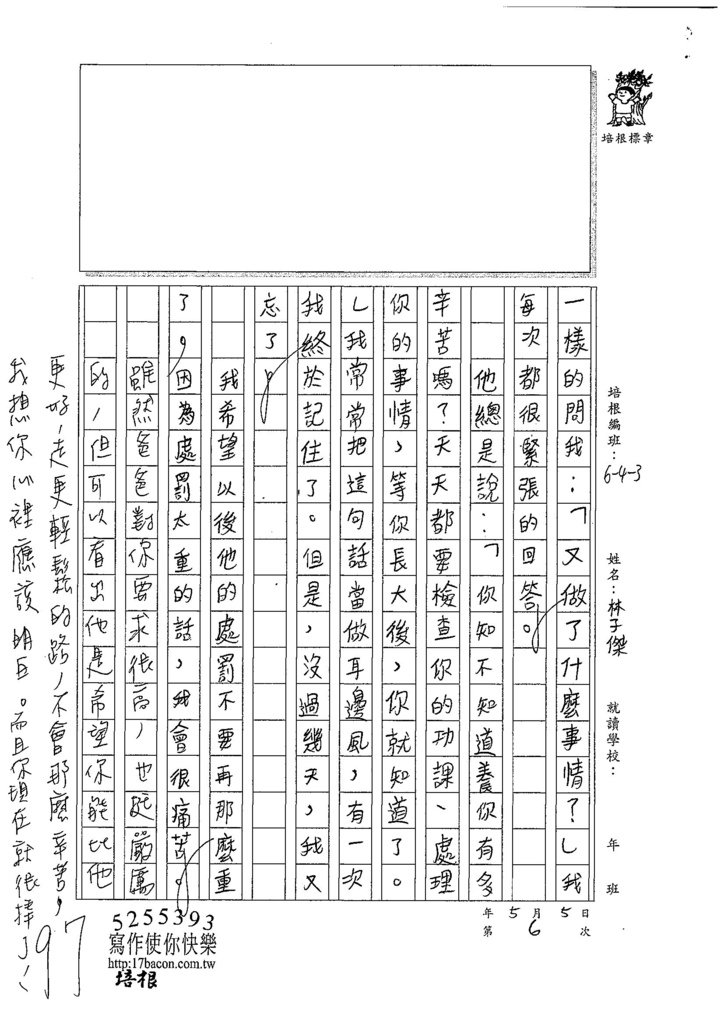 培根標章
培根編班：6-4-3
姓名：林子傑
就讀學校：
年 班
5月5日
年 第6次
一樣的問我：「又做了什麼事情？」我
每次都很緊張的回答。
他總是說：「你知不知道養你有多
辛苦嗎？天天都要檢查你的功課、處理
你的事情，等你長大後，你就知道了。
」我常常把這句話當做耳邊風，有一次
我終於記住了。但是，沒過幾天，我又
忘了。
我希望以後他的處罰不要再那麼重
了，因為處罰太重的話，我會很痛苦。
雖然爸爸對你要求很高，也挺嚴厲
的，但可以看出他是希望你能比他
更好，走更輕鬆的路，不會那麼辛苦，
我想你心裡應該明白。而且你現在就很棒了！
97
5255393
寫作使你快樂
http:17bacon.com.tw
培根